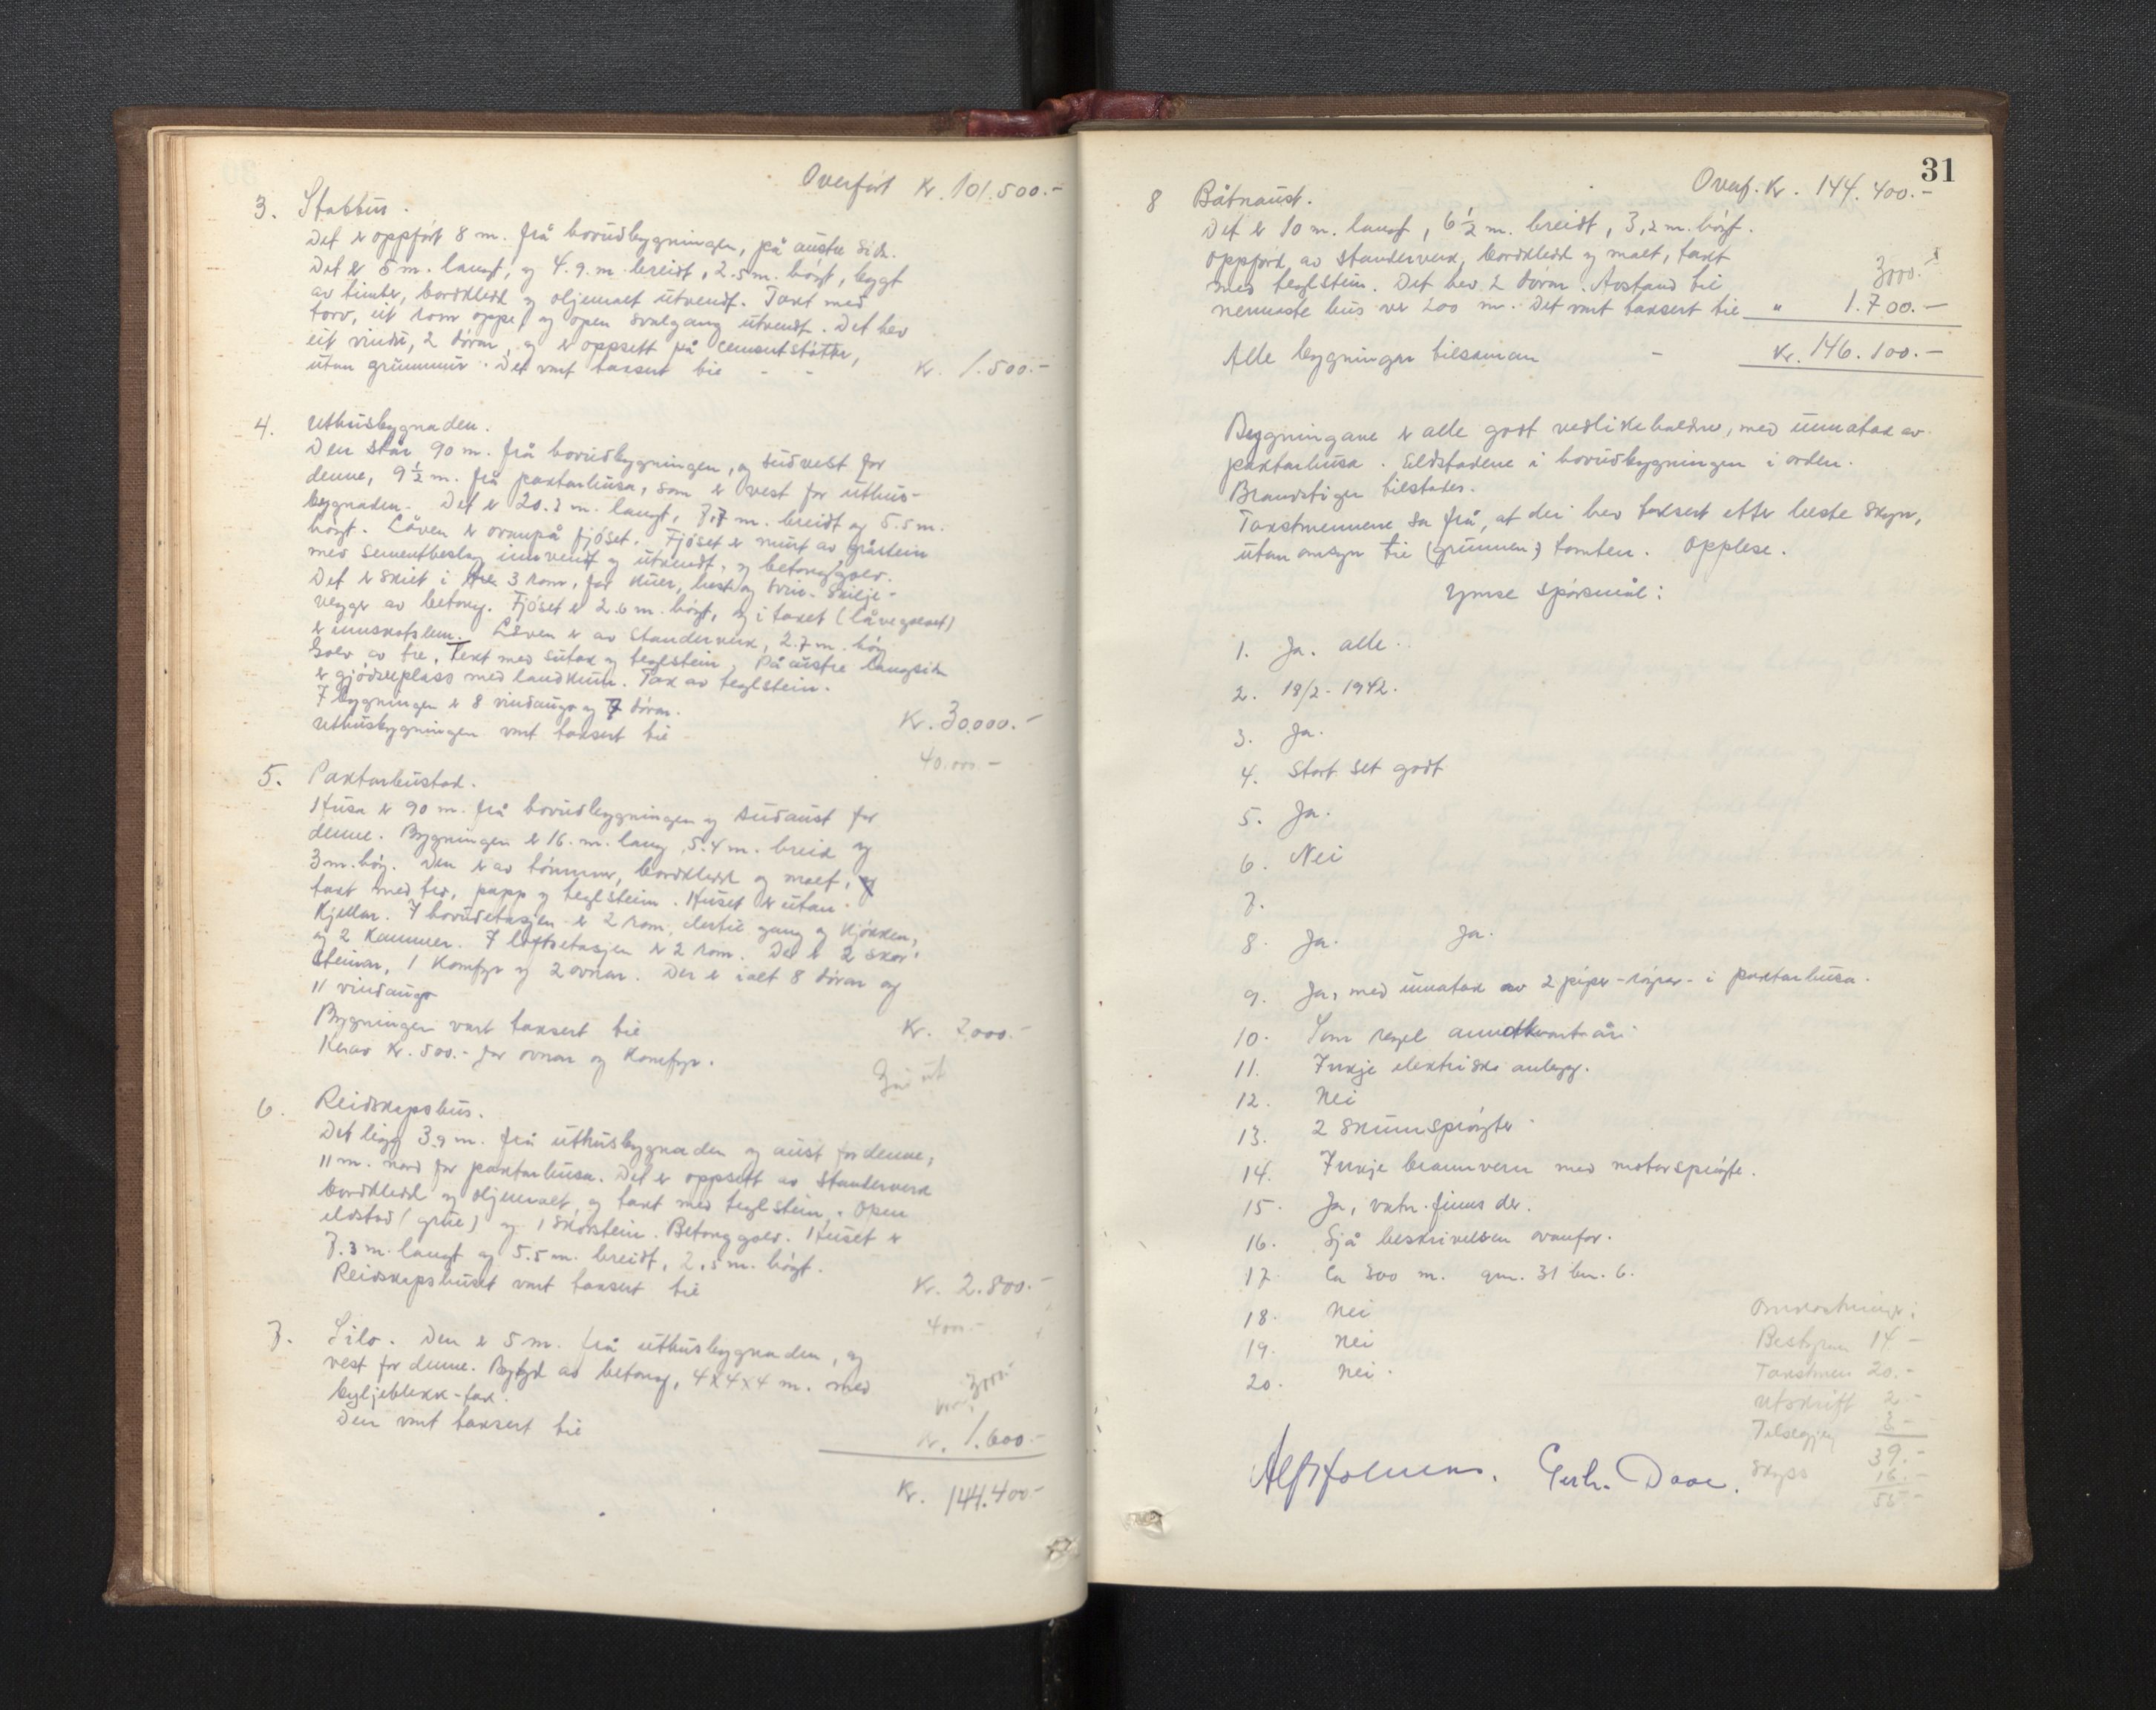 Overført Kr. 101.500.-
3. Stabbur.
Det er oppført 8 m. frå hovudbygningen, på austre sida.
Det er 5 m. langt, og 4.9. m. breidt, 2.5 m. høgt, bygt
av timber, bordkledd og oljemalt utvendt. Taxt med
torv, eit rom oppe, og open svalgang utvendt. Det hev
eit vindu, 2 dørar, og er oppsett på cementstøtter,
utan grunnmur. Det vart taksert til - - Kr. 1.500.-
4. Uthusbygnaden.
Den står 90 m. frå hovudbygningen, og sudvest for
denne, 9 1/2 m. frå paktarhusa, som er vest for uthus-
bygnaden. Det er 20.3 m. langt, 7,7 m. breidt og 5.5 m.
høgt. Låven er ovanpå fjøset. Fjøset er murt av gråstein
med sementbeslag innvendt og utvendt, og betonggolv.
Det er skilt i 3 rom, for kuer, hest og svin. Skilje-
vegger av betong. Fjøset er 2.6 m. høgt, og i taket (låvegolvet)
er innskotslem. Låven er av standerverk, 2.7 m. høg
Golv av tre, Tekt med sutak og teglstein, På austre langside
er gjødselplass med landkum. Tak av teglstein.
I bygningen er 8 vindaugo og 7 dørar.
Uthusbygningen vart taksert til Kr. 30.000.-
40.000.-
5. Paktarbustad.
Husa er 90 m. frå hovudbygningen og sudaust for
denne. Bygningen er 16. m. lang, 5.4 m. breid og
3 m. høg. Den er av tømmer, bordkledd og malt, og
takt med tro, papp og teglstein. Huset er utan
Kjellar. I hovudetasjen er 2 rom, dertil gang og kjøkken,
og 2 kammer. I loftsetasjen er 2 rom. Det er 2 skor-
steinar, 1 komfyr og 2 ovnar. Der er ialt 8 dørar og
11 vindaugo
Bygningen vart taksert til Kr. 7000.-
Herav kr. 500.- for ovnar og komfyr.
ut
6. Reidskapshus.
Det ligg 3.9 m. frå uthusbygnaden og aust for denne,
11 m. nord for paktarhusa. Det er oppsett av standerverk
bordkledd og oljemalt, og takt med teglstein. Open
eldstad (grue) og 1 skorstein. Betonggolv. Huset er
7.3 m. langt og 5.5 m. breidt, 2,5 m. høgt.
Reidskapshuset vart taksert til Kr. 2.800.-
4000.-
7. Silo. Den er 5 m. frå uthusbygnaden, og
vest for denne. Bygd av betong, 4x4x4 m. med
bylgjeblekk-tak. 3000.-
Den vart taksert til Kr. 1.600.-
Kr. 144.400.-
31
Overf. Kr. 144.400.-
8 Båtnaust.
Det er 10 m. langt, 6 1/2 m. breidt, 3,2 m. høgt.
Oppførd av standerverk, bordkledd og malt, takt
med teglstein. Det hev 2 dørar. Avstand til 3000.-
nermaste hus er 200 m. Det vart taksert til " 1.700.-
Alle bygningar tilsaman - Kr. 146.100.-
Bygningane er alle godt vedlikehaldne, med unnatak av
paktarhusa. Eldstadene i hovudbygningen i orden.
Brandstigar tilstades.
Takstmennene sa frå, at dei hev taksert etter beste skyn,
utan omsyn til (grunnen) tomten. Opplese.
Ymse spørsmål:
1. Ja. alle.
2. 18/2 - 1942.
3. Ja.
4. Stort set godt
5. Ja.
6. Nei
7.
8. Ja. Ja.
9. Ja, med unnatak av 2 piper - røyrar - i paktarhusa.
10. Som regel annotkvart år.
11. Inkje elektriske anlegg.
12. Nei
13. 2 skumsprøyter
14. Inkje brannvern med motorsprøyte.
15. Ja, vatn finns der.
16. Sjå beskrivelsen ovanfor.
17. Ca 300 m. gnr. 31 bnr. 6.
18. Nei
19. Nei
20. Nei.
Omkostninger:
Bestyrar 14.-
Takstmen 20.-
Utskrift 2.-
Tilsegjing 3.-
39.-
Skyss 16.-
55.-
Gerh. Daae.